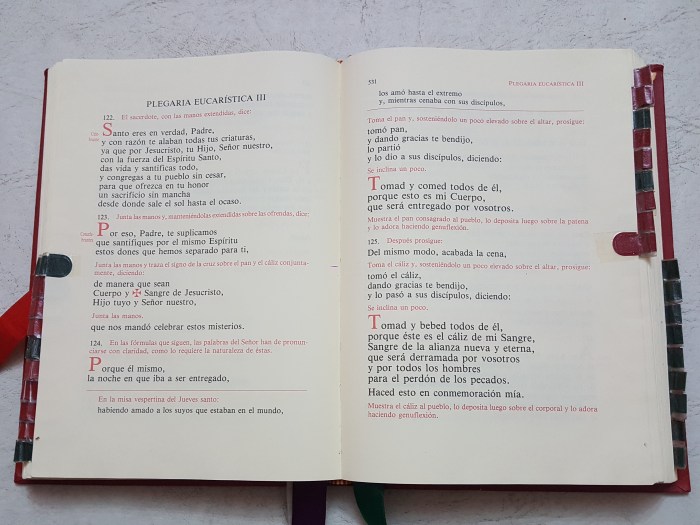 PLEGARIA EUCARÍSTICA III
122. El sacerdote, con las manos extendidas, dice:
Santo eres en verdad, Padre,
y con razón te alaban todas tus criaturas,
ya que por Jesucristo, tu Hijo, Señor nuestro,
con la fuerza del Espíritu Santo,
das vida y santificas todo,
y congregas a tu pueblo sin cesar,
para que ofrezca en tu honor
un sacrificio sin mancha
desde donde sale el sol hasta el ocaso.
123. Junta las manos y, manteniéndolas extendidas sobre las ofrendas, dice:
Por eso, Padre, te suplicamos
que santifiques por el mismo Espíritu
estos dones que hemos separado para ti,
Junta las manos y traza el signo de la cruz sobre el pan y el cáliz conjunta-
mente, diciendo:
de manera que sean
Cuerpo y ✠ Sangre de Jesucristo,
Hijo tuyo y Señor nuestro,
Junta las manos.
que nos mandó celebrar estos misterios.
124. En las fórmulas que siguen, las palabras del Señor han de pronun-
ciarse con claridad, como lo requiere la naturaleza de éstas.
Porque él mismo,
la noche en que iba a ser entregado,
En la misa vespertina del Jueves santo:
habiendo amado a los suyos que estaban en el mundo,
551 PLEGARIA EUCARÍSTICA III
los amó hasta el extremo
y, mientras cenaba con sus discípulos,
Toma el pan y, sosteniéndolo un poco elevado sobre el altar, prosigue:
tomó pan,
y dando gracias te bendijo,
lo partió
y lo dio a sus discípulos, diciendo:
Se inclina un poco.
Tomad y comed todos de él,
porque esto es mi Cuerpo,
que será entregado por vosotros.
Muestra el pan consagrado al pueblo, lo deposita luego sobre la patena
y lo adora haciendo genuflexión.
125. Después prosigue:
Del mismo modo, acabada la cena,
Toma el cáliz y, sosteniéndolo un poco elevado sobre el altar, prosigue:
tomó el cáliz,
dando gracias te bendijo,
y lo pasó a sus discípulos, diciendo:
Se inclina un poco.
Tomad y bebed todos de él,
porque éste es el cáliz de mi Sangre,
Sangre de la alianza nueva y eterna,
que será derramada por vosotros
y por todos los hombres
para el perdón de los pecados.
Haced esto en conmemoración mía.
Muestra el cáliz al pueblo, lo deposita luego sobre el corporal y lo adora
haciendo genuflexión.